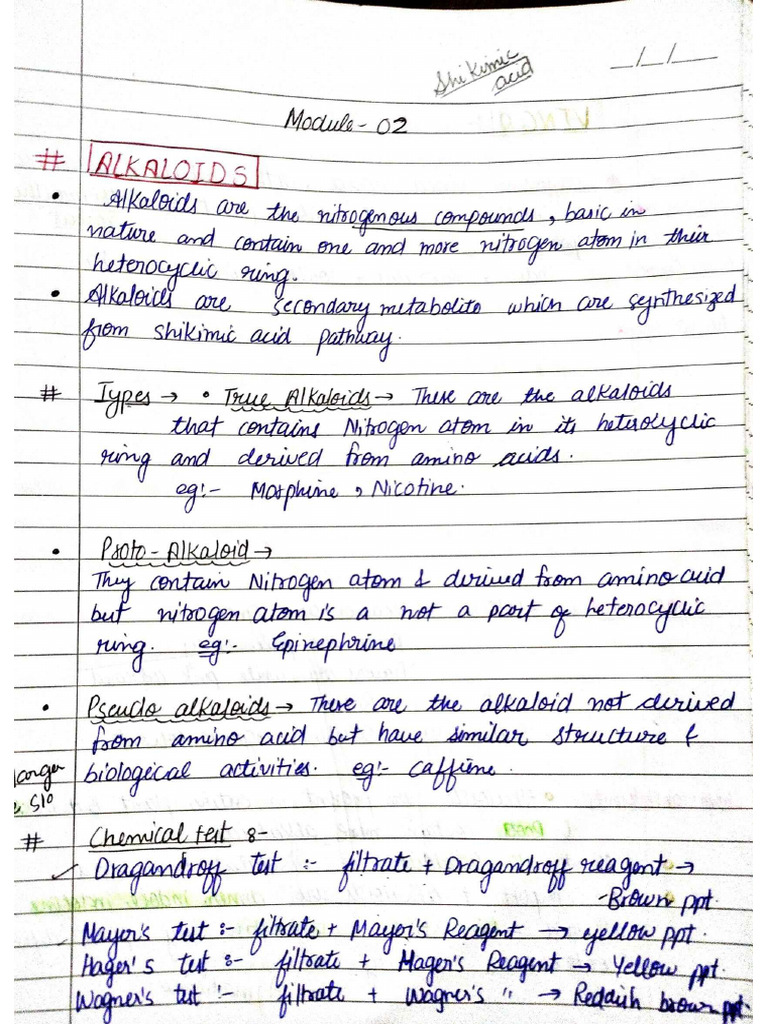 Shikimic
acid
_/_/_
Module-02
# ALKALOIDS
• Alkaloids are the nitrogenous compounds, basic in
nature and contain one and more nitrogen atom in their
heterocyclic ring.
• Alkaloids are secondary metabolito which are synthesized
from shikimic acid pathway.
# Types → • True Alkaloids → These are the alkaloids
that contains Nitrogen atom in its heterolyclic
ring and derived from amino acids.
eg:- Morphine, Nicotine.
• Proto-Alkaloid →
They contain Nitrogen atom & derived from amino acid
but nitrogen atom is a not a part of heterocyclic
ring. eg:- Epinephrine
• Pseudo alkaloids → These are the alkaloid not derived
from amino acid but have similar structure &
biological activities. eg:- caffiene.
# Chemical test :-
✓ Dragandroff test :- filtrate + Dragandroff reagent →
-Brown ppt.
Mayor's test :- filtrate + Mayor's Reagent → yellow ppt.
Hager's test :- filtrate + Hager's Reagent → Yellow ppt.
Wagner's test :- filtrate + Wagner's " → Reddish brown ppt